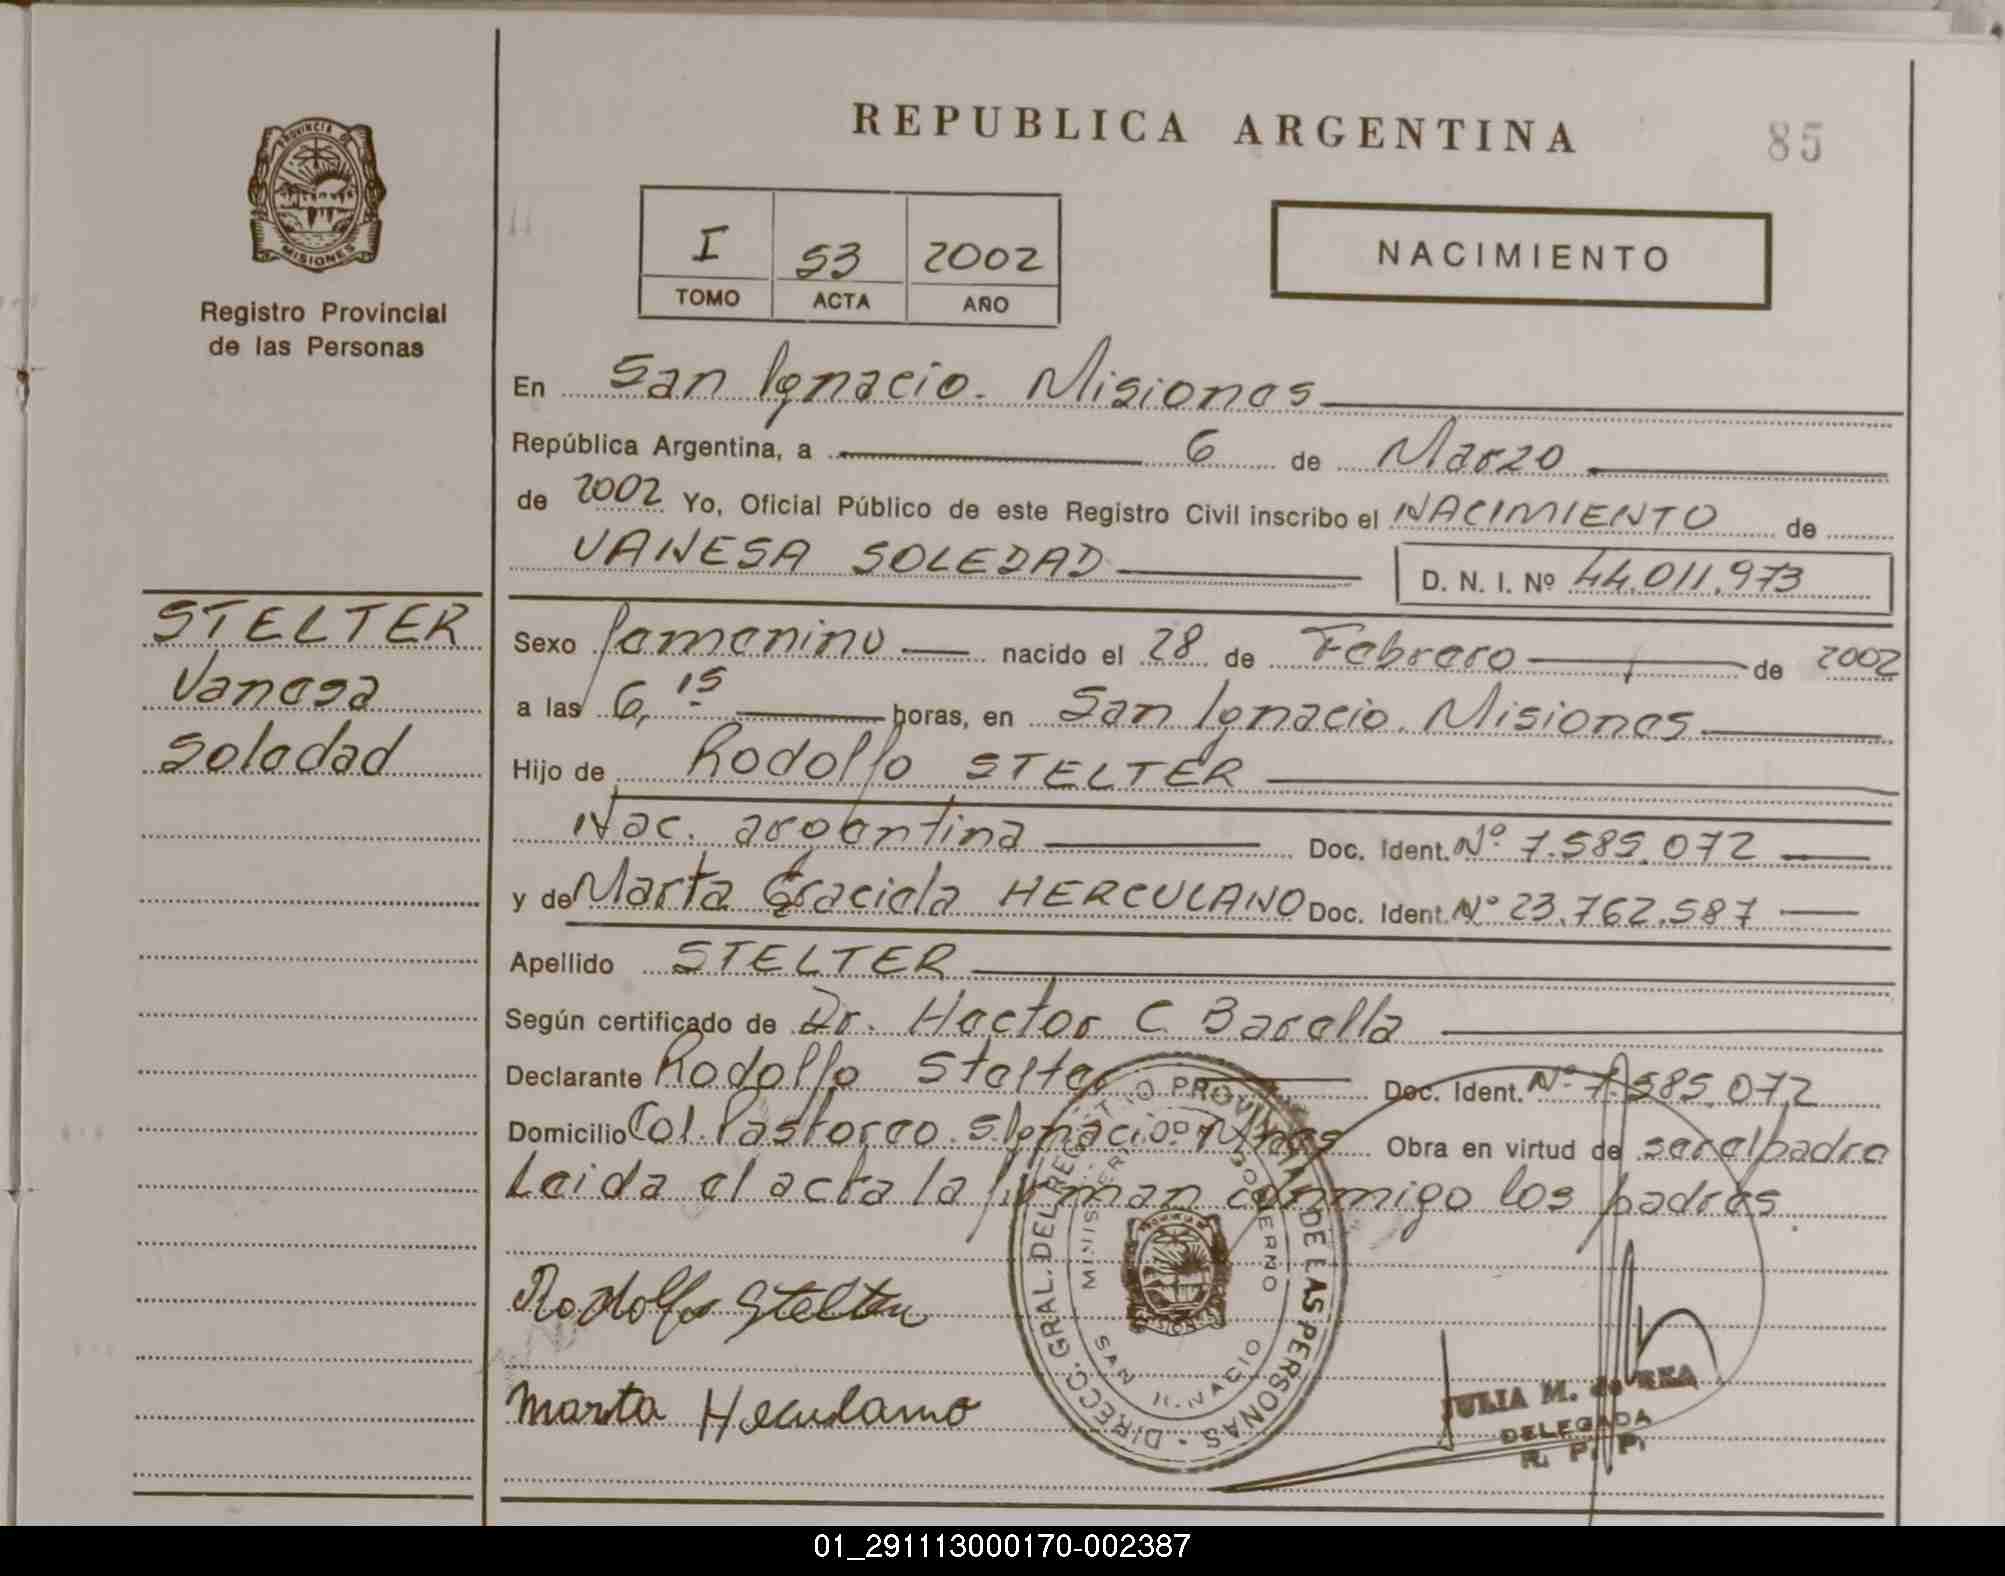 REPUBLICA ARGENTINA
85
PROVINCIA DE
MISIONES
Registro Provincial
de las Personas
I 53 2002
TOMO ACTA AÑO
NACIMIENTO
En San Ignacio. Misiones
República Argentina, a 6 de Marzo
de 2002 Yo, Oficial Público de este Registro Civil inscribo el NACIMIENTO de
VANESA SOLEDAD D. N. I. Nº 44.011.973
STELTER
Vanesa
Soledad
Sexo femenino nacido el 28 de Febrero de 2002
a las 6,15 horas, en San Ignacio. Misiones
Hijo de Rodolfo STELTER
Nac. argentina Doc. Ident. Nº 7.585.072
y de Marta Graciela HERCULANO Doc. Ident. Nº 23.762.587
Apellido STELTER
Según certificado de Dr. Hector C. Barella
Declarante Rodolfo Stelter Doc. Ident. Nº 7.585.072
Domicilio Col. Pastoreo. S. Ignacio. Mnes Obra en virtud de ser el padre
Leida el acta la firman conmigo los padres.
Rodolfo Stelter
Marta Herculano
DIRECC. GRAL. DEL REGISTRO PROVINCIAL DE LAS PERSONAS
MINISTERIO DE GOBIERNO
SAN IGNACIO
JULIA M. de REA
DELEGADA
R. P. P.
01_291113000170-002387